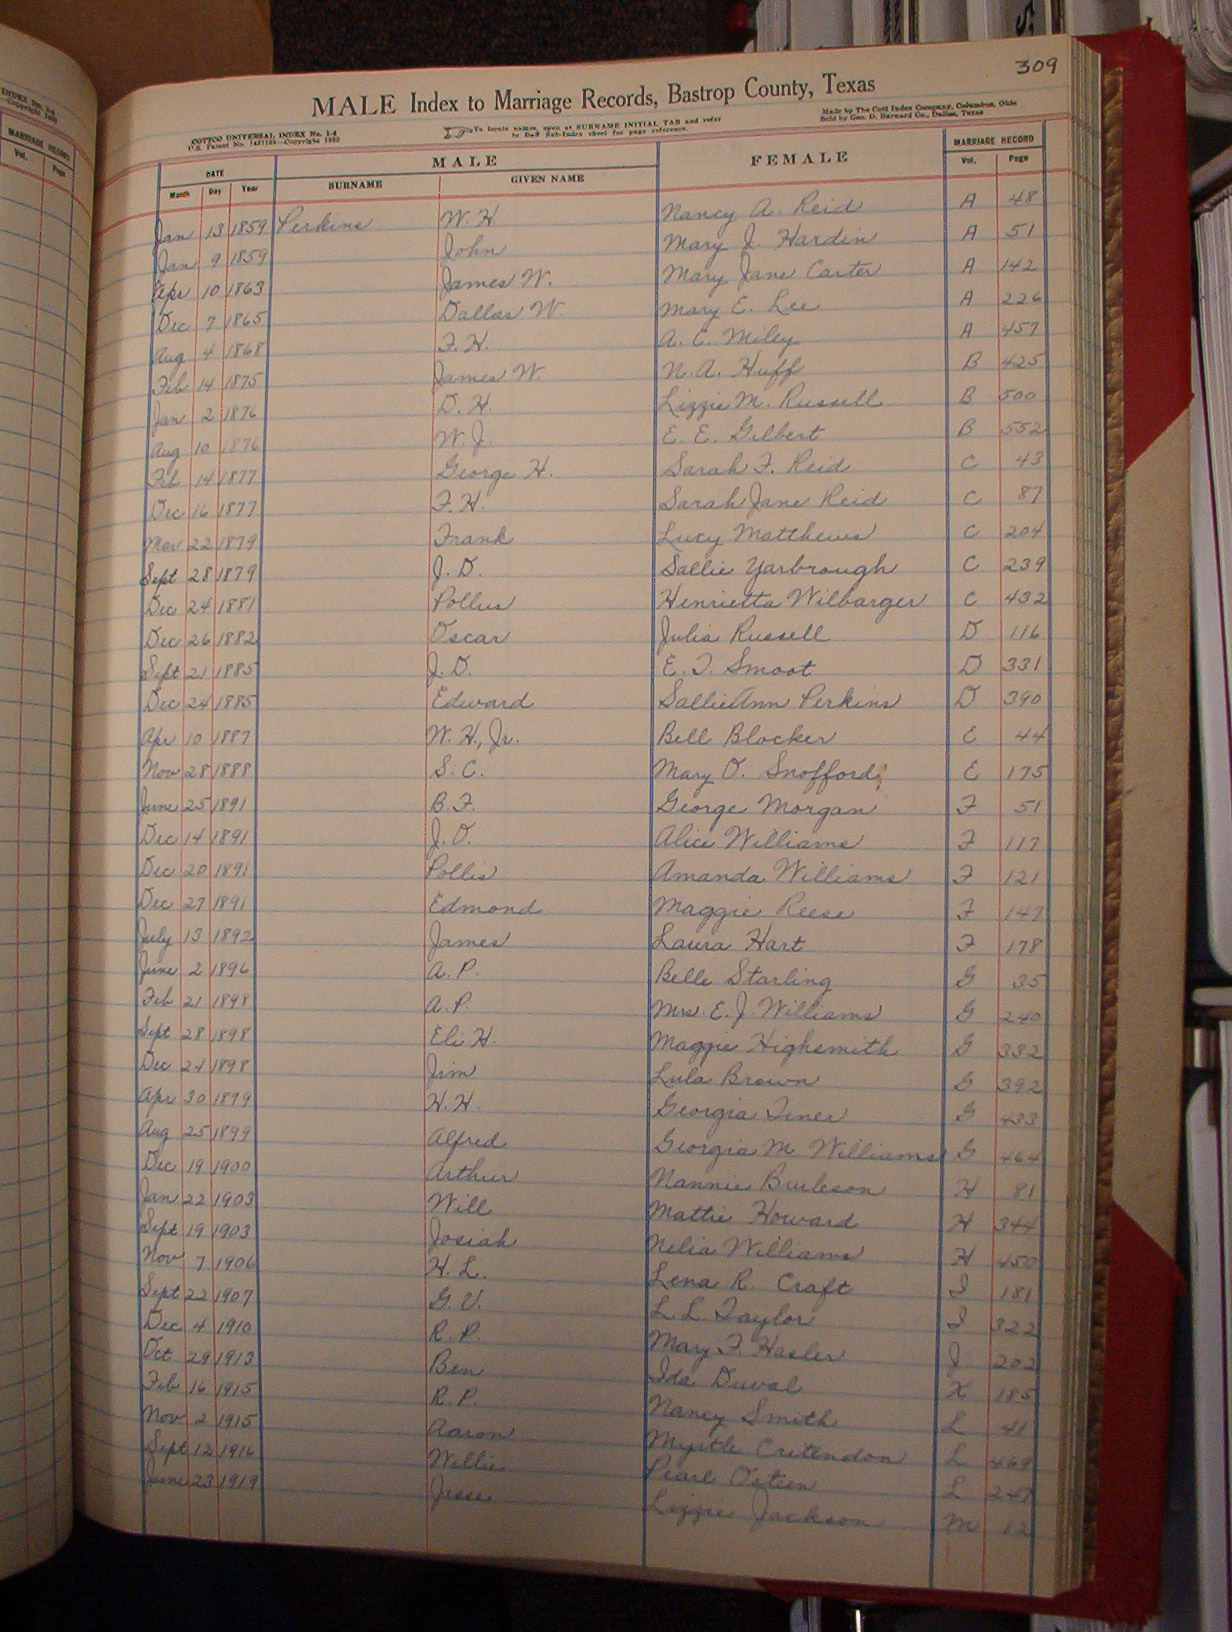 309
MALE Index to Marriage Records, Bastrop County, Texas
COTTCO UNIVERSAL INDEX No. 1-4
U.S. Patent No. 1427184—Copyright 1923
To locate names, open at SURNAME INITIAL TAB and refer
to Buff Sub-Index sheet for page reference.
Made by The Cott Index Company, Columbus, Ohio
Sold by Geo. D. Barnard Co., Dallas, Texas
DATE MALE FEMALE MARRIAGE RECORD
Month Day Year SURNAME GIVEN NAME Vol. Page
Jan 13 1859 Perkins W. H. Nancy A. Reid A 48
Jan 9 1859 John Mary J. Hardin A 51
Apr 10 1863 James W. Mary Jane Carter A 142
Dec 7 1865 Dallas W. Mary E. Lee A 226
Aug 4 1868 F. H. A. C. Miley A 457
Feb 14 1875 James W. N. A. Huff B 425
Jan 2 1876 D. H. Lizzie M. Russell B 500
Aug 10 1876 W. J. E. E. Gilbert B 552
Feb 14 1877 George H. Sarah F. Reid C 43
Dec 16 1877 F. H. Sarah Jane Reid C 87
Mar 22 1879 Frank Lucy Matthews C 204
Sept 28 1879 J. D. Sallie Yarbrough C 239
Dec 24 1881 Pollus Henrietta Wilbarger C 432
Dec 26 1882 Oscar Julia Russell D 116
Sept 21 1885 J. D. E. T. Smoot D 331
Dec 24 1885 Edward Sallie Ann Perkins D 390
Apr 10 1887 W. H., Jr. Bell Blocker E 44
Nov 28 1888 S. C. Mary O. Snofford E 175
June 25 1891 B. F. George Morgan F 51
Dec 14 1891 J. O. Alice Williams F 117
Dec 20 1891 Pollis Amanda Williams F 121
Dec 27 1891 Edmond Maggie Reese F 147
July 13 1892 James Laura Hart F 178
June 2 1896 A. P. Belle Starling G 35
Feb 21 1898 A. P. Mrs. E. J. Williams G 240
Sept 28 1898 Eli H. Maggie Highsmith G 332
Dec 24 1898 Jim Lula Brown G 392
Apr 30 1899 H. H. Georgia Tiner G 433
Aug 25 1899 Alfred Georgia M. Williams G 464
Dec 19 1900 Arthur Nannie Burleson H 81
Jan 22 1903 Will Mattie Howard H 344
Sept 19 1903 Josiah Nelia Williams H 450
Nov 7 1906 H. L. Lena R. Craft I 181
Sept 22 1907 G. V. L. L. Taylor I 322
Dec 4 1910 R. P. Mary F. Hasler J 202
Oct 29 1913 Ben Ida Duval K 185
Feb 16 1915 R. P. Nancy Smith L 41
Nov 2 1915 Aaron Myrtle Critendon L 469
Sept 12 1916 Willie Pearl L 247
June 23 1919 Jesse Lizzie Jackson M 12